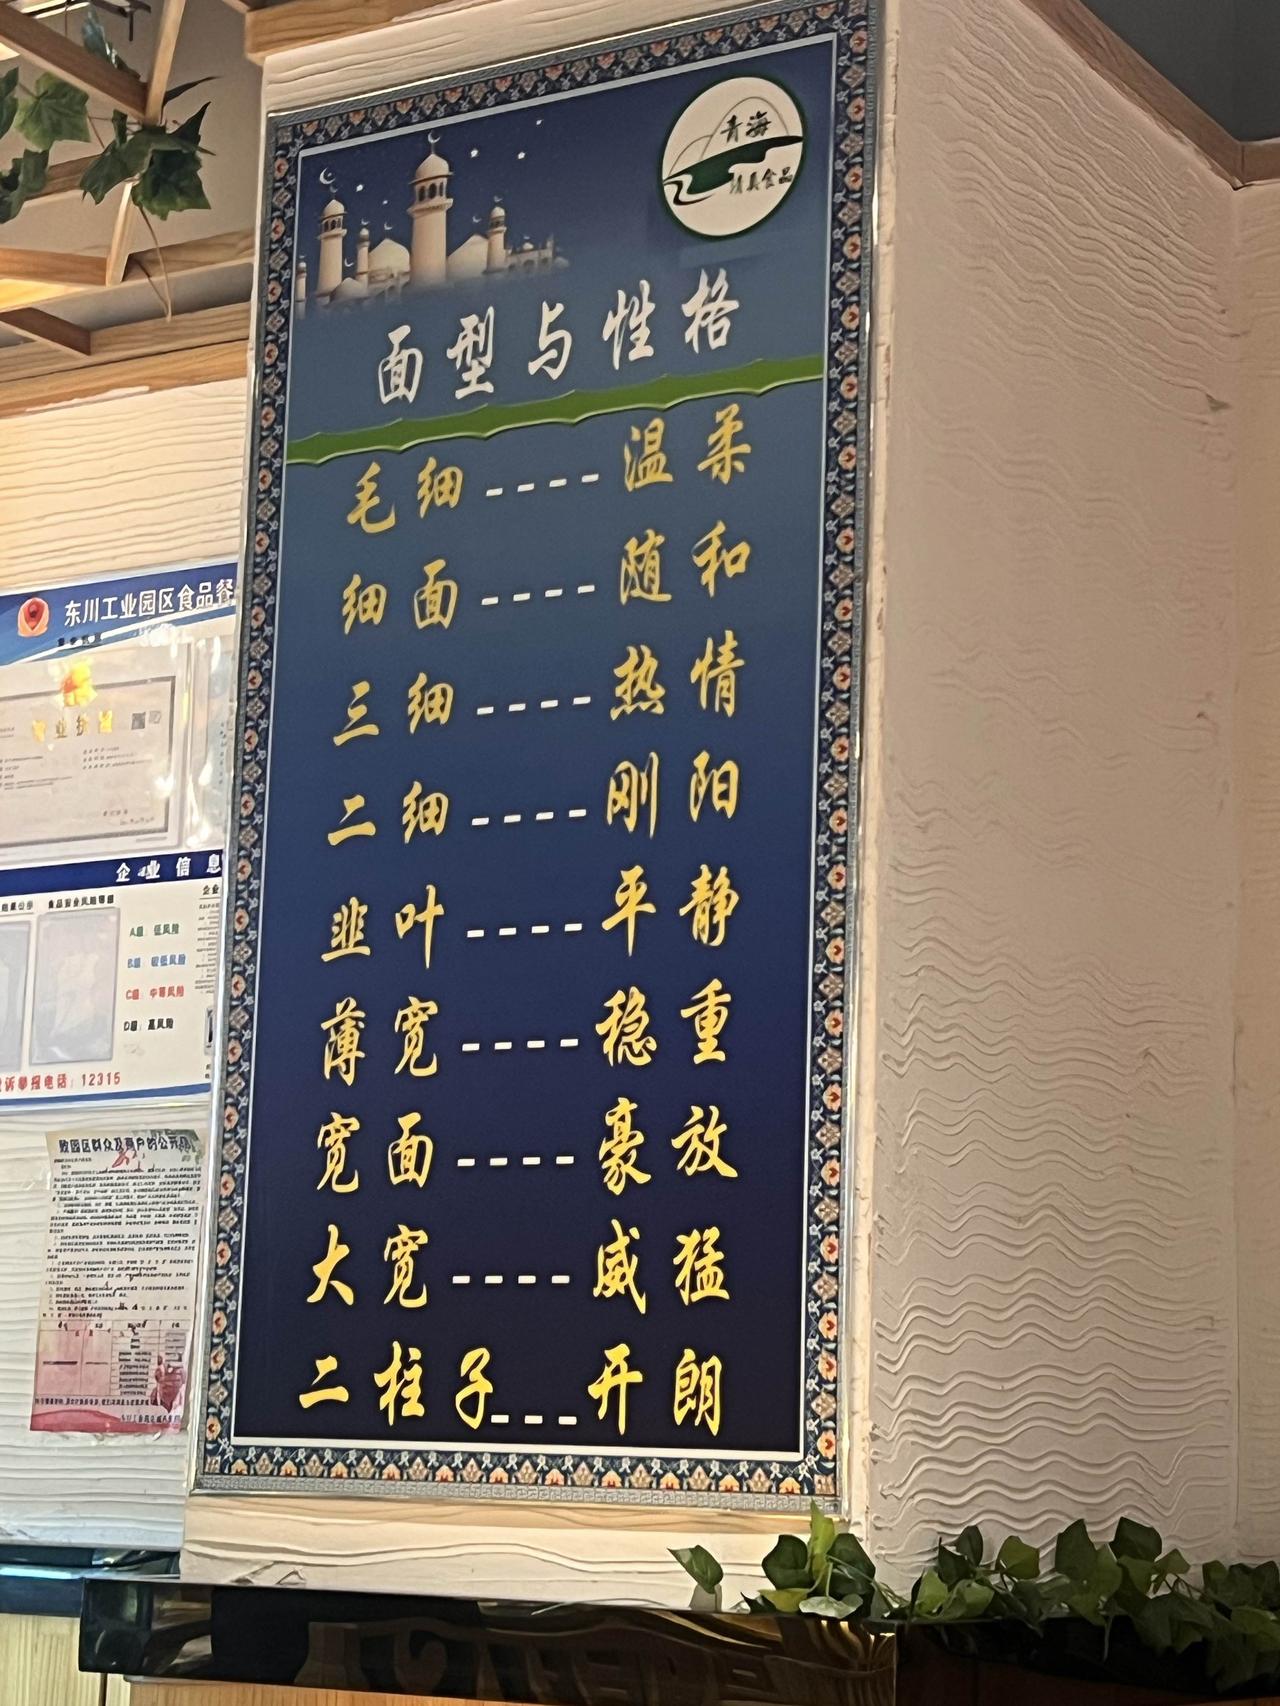 青海
清真食品
面型与性格
毛细----温柔
细面----随和
三细----热情
二细----刚阳
韭叶----平静
薄宽----稳重
宽面----豪放
大宽----威猛
二柱子---开朗
东川工业园区食品餐
营业执照
企业信息
食品安全风险等级
企业
A级：低风险
B级：较低风险
C级：中等风险
D级：高风险
诉举报电话：12315
致园区群众及商户的公开